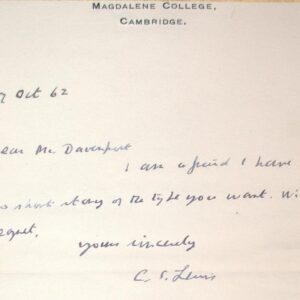 MAGDALENE COLLEGE,
CAMBRIDGE.
7 Oct 62
ear Mr. Davenport
I am afraid I have
o short story of the type you want. Wi
egret,
yours sincerely
C. S. Lewis